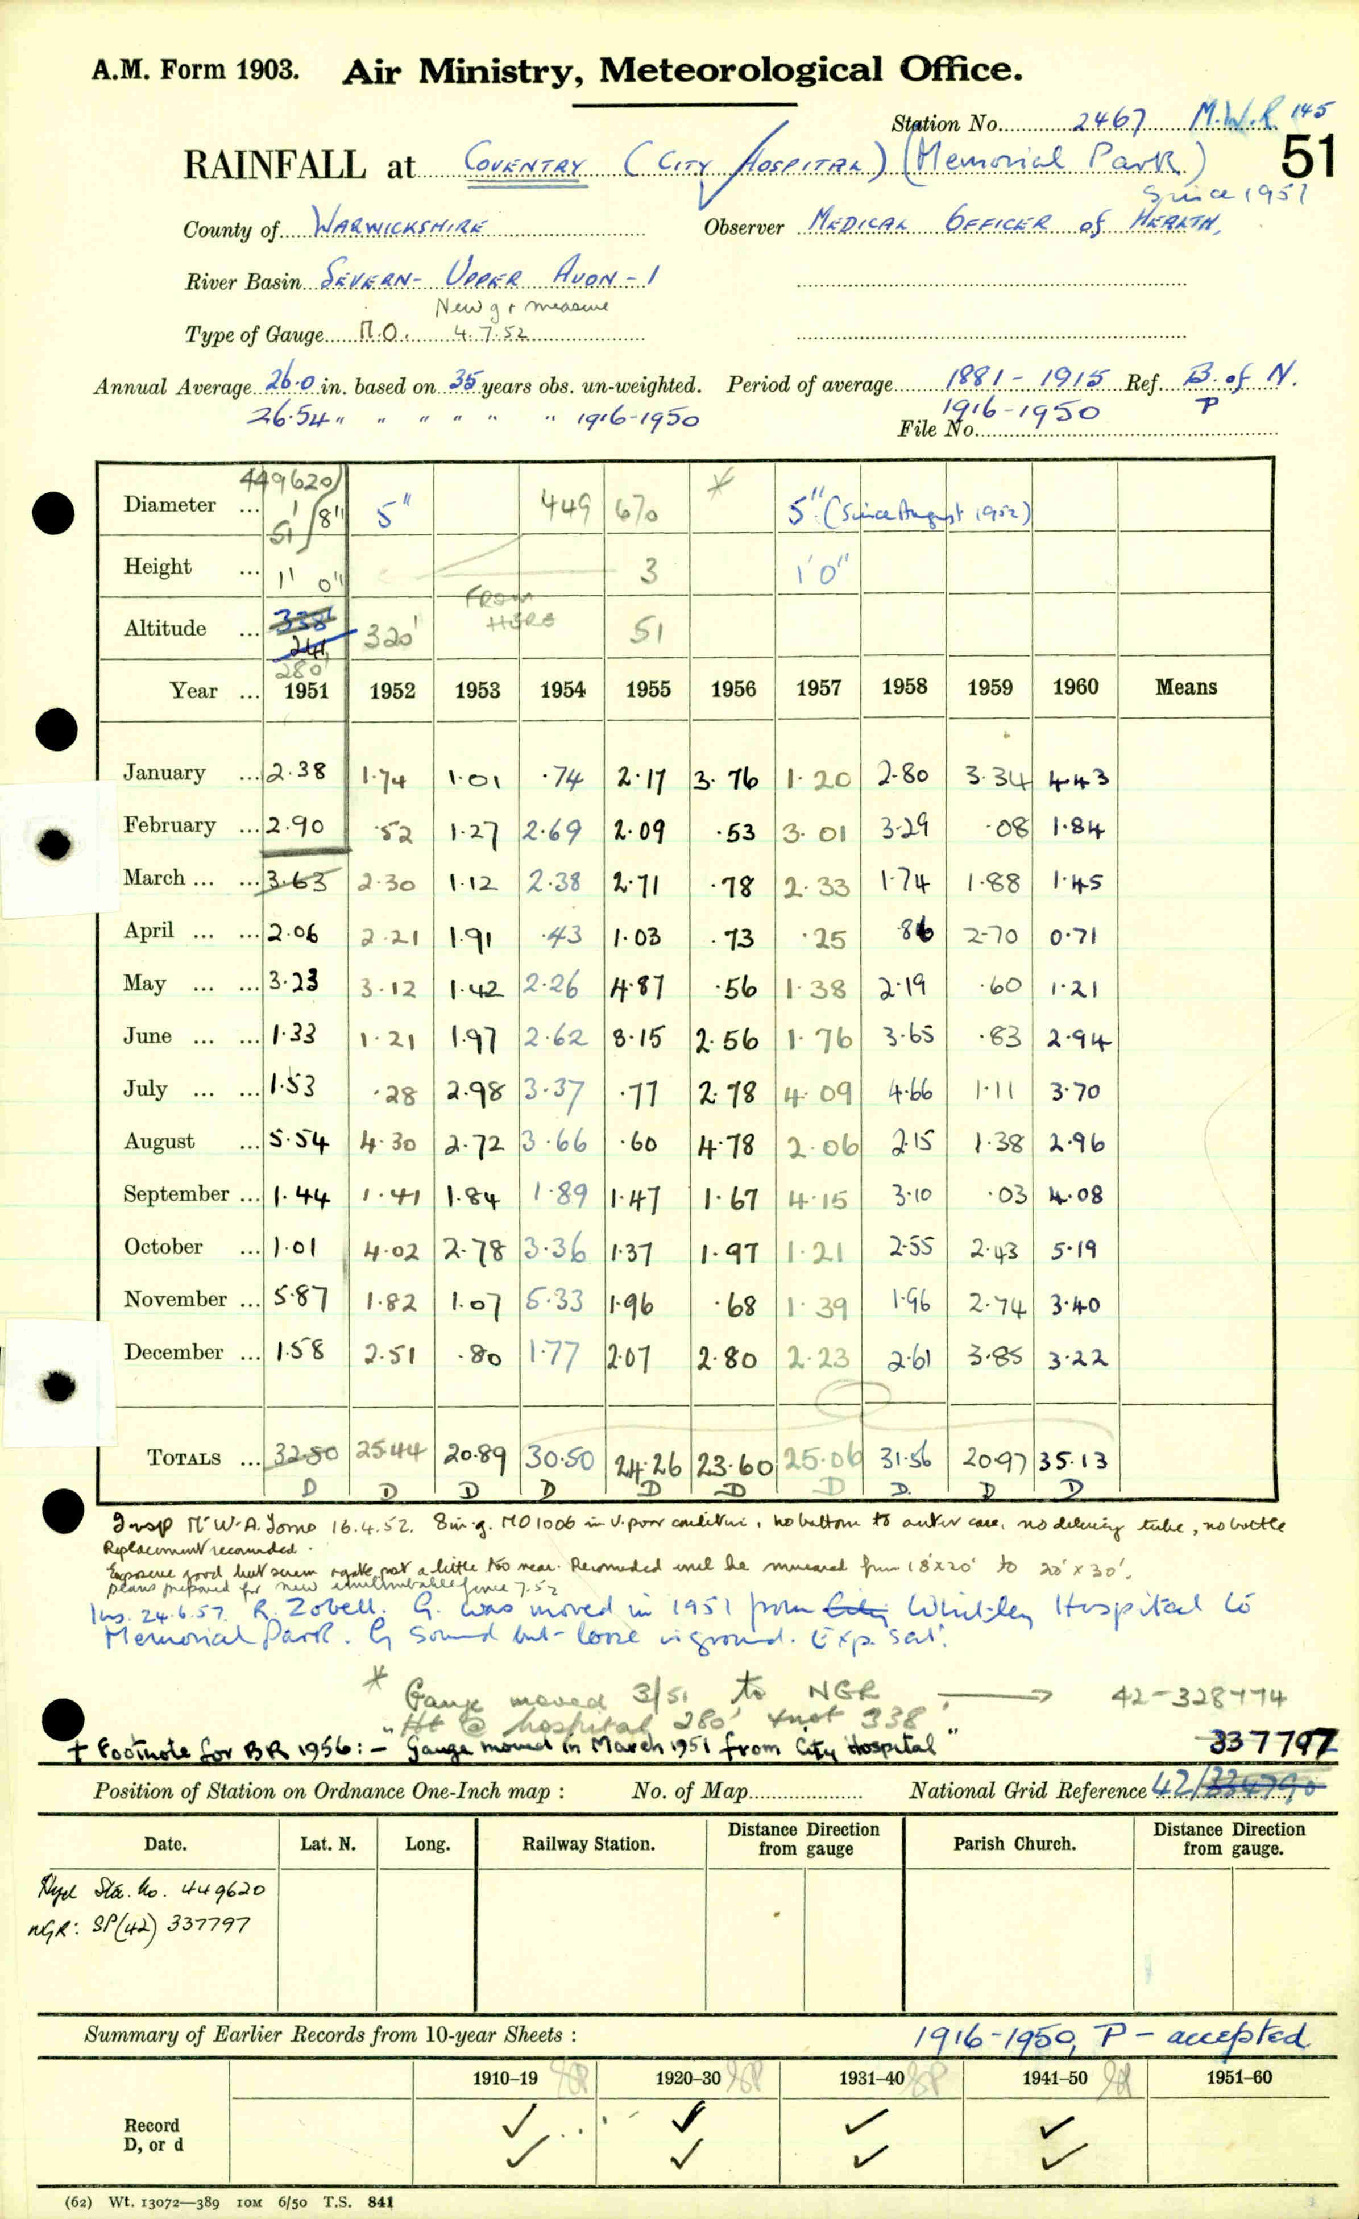 A.M. Form 1903. Air Ministry, Meteorological Office.
Station No. 2467 M.W.R 145
51
RAINFALL at COVENTRY (CITY HOSPITAL) (Memorial Park)
Since 1951
County of WARWICKSHIRE Observer MEDICAL OFFICER of HEALTH,
River Basin SEVERN - UPPER AVON - 1
New g + measure
Type of Gauge M.O. 4.7.52
Annual Average 26.0 in. based on 35 years obs. un-weighted. Period of average 1881 - 1915 Ref. B. of N.
26.54 " " " " " " 1916-1950 1916-1950 P
File No.
449620
Diameter ... 51 / 8" 5" 449 670 * 5" (Since August 1952)
Height ... 1' 0" 3 1' 0"
FROM HERE
Altitude ... 338' 241 280' 320' 51
Year ... 1951 1952 1953 1954 1955 1956 1957 1958 1959 1960 Means
January ... 2.38 1.74 1.01 .74 2.17 3.76 1.20 2.80 3.34 4.43
February ... 2.90 .52 1.27 2.69 2.09 .53 3.01 3.29 .08 1.84
March ... ... 3.63 2.30 1.12 2.38 2.71 .78 2.33 1.74 1.88 1.45
April ... ... 2.06 2.21 1.91 .43 1.03 .73 .25 .86 2.70 0.71
May ... ... 3.23 3.12 1.42 2.26 4.87 .56 1.38 2.19 .60 1.21
June ... ... 1.33 1.21 1.97 2.62 3.15 2.56 1.76 3.65 .83 2.94
July ... ... 1.53 .28 2.98 3.37 .77 2.78 4.09 4.66 1.11 3.70
August ... 5.54 4.30 2.72 3.66 .60 4.78 2.06 2.15 1.38 2.96
September ... 1.44 1.41 1.84 1.89 1.47 1.67 4.15 3.10 .03 4.08
October ... 1.01 4.02 2.78 3.36 1.37 1.97 1.21 2.55 2.43 5.19
November ... 5.87 1.82 1.07 5.33 1.96 .68 1.39 1.96 2.74 3.40
December ... 1.58 2.51 .80 1.77 2.07 2.80 2.23 2.61 3.85 3.22
TOTALS ... 32.50 25.44 20.89 30.50 24.26 23.60 25.06 31.56 20.97 35.13
D D D D D D D D. D D
Insp Mr W.A. 16.4.52. 8 in. g. MO 1006 in v. poor condition, no bottom to outer case, no delivery tube, no bottle
Replacement recommended.
Exposure good but screen a little too near. Recommended encl be increased from 18'x20' to 20' x 30'.
Plans prepared for new June 7.52
Ins. 24.6.57. R. Zobell. G. was moved in 1951 from City Whitley Hospital to
Memorial Park. G sound but loose in ground. Exp. sat.
* Gauge moved 3/51 to NGR → 42-328774
"Ht @ hospital 280' & not 338'
+ Footnote for BR 1956:- Gauge moved in March 1951 from City Hospital" 337797
Position of Station on Ordnance One-Inch map : No. of Map National Grid Reference 42/334790
Date. Lat. N. Long. Railway Station. Distance from Direction gauge Parish Church. Distance from Direction gauge.
Hyd Sta. No. 449620
NGR: SP(42) 337797
Summary of Earlier Records from 10-year Sheets : 1916-1950, P - accepted
1910-19 1920-30 1931-40 1941-50 1951-60
Record ✓ ✓ ✓ ✓
D, or d ✓ ✓ ✓ ✓
(62) Wt. 13072—389 10M 6/50 T.S. 841